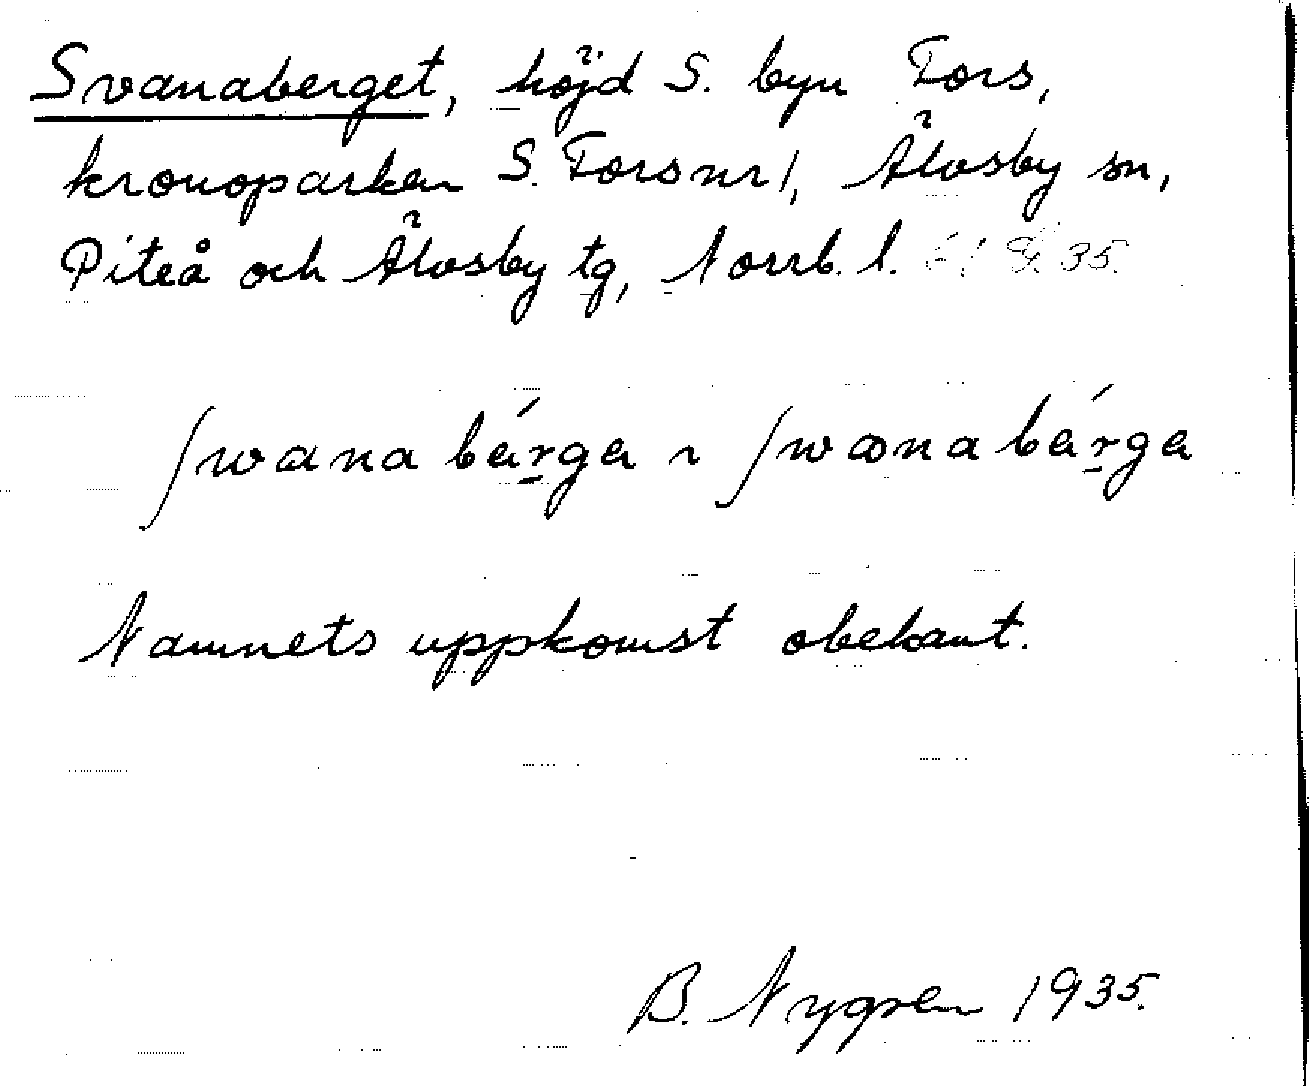 Svanaberget, höjd S. byn Fors,
kronoparken S. Fors nr 1, Älvsby sn,
Piteå och Älvsby tg, Norrb. l. 61 G. 35.
ʃwana bárga ~ ʃwæna bárga
Namnets uppkomst obekant.
B. Nygren 1935.